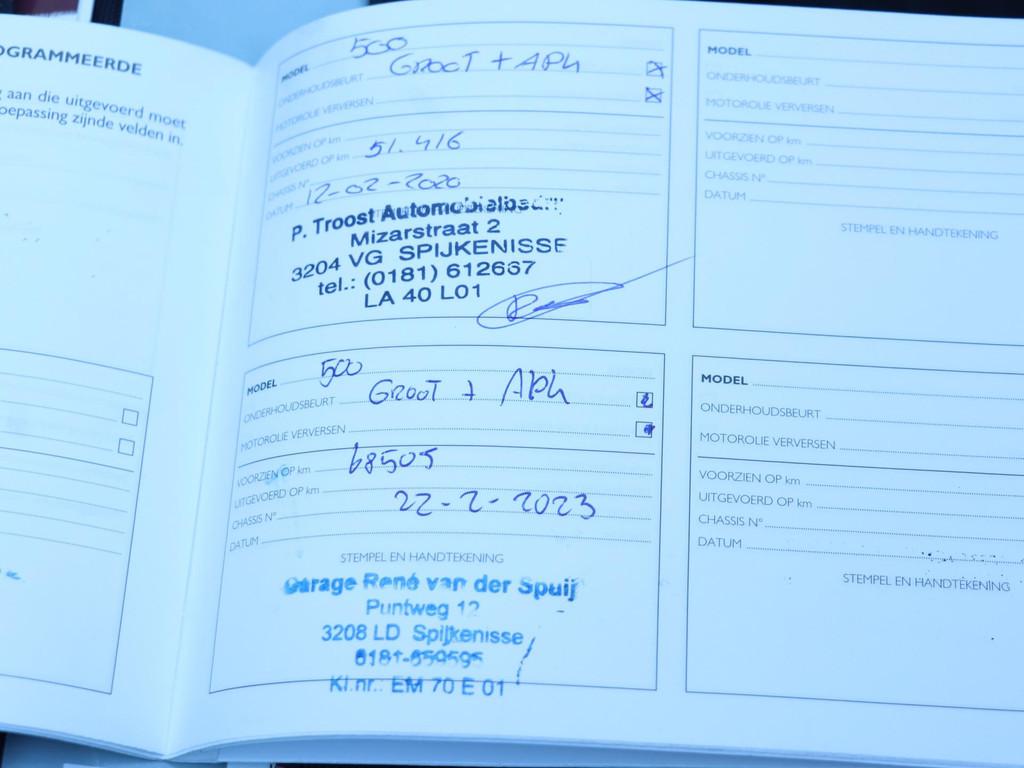 OGRAMMEERDE
aan die uitgevoerd moet
oepassing zijnde velden in.
MODEL 500
ONDERHOUDSBEURT GROOT + APK
MOTOROLIE VERVERSEN
VOORZIEN OP km
UITGEVOERD OP km 51.416
CHASSIS N°
DATUM 12-02-2020
P. Troost Automobielbedrijf
Mizarstraat 2
3204 VG SPIJKENISSE
tel.: (0181) 612667
LA 40 L01
MODEL 500
ONDERHOUDSBEURT GROOT + APK
MOTOROLIE VERVERSEN
VOORZIEN OP km 68505
UITGEVOERD OP km
CHASSIS N° 22-2-2023
DATUM
STEMPEL EN HANDTEKENING
Garage René van der Spuij
Puntweg 12
3208 LD Spijkenisse
0181-659595
Kl.nr.: EM 70 E 01
MODEL
ONDERHOUDSBEURT
MOTOROLIE VERVERSEN
VOORZIEN OP km
UITGEVOERD OP km
CHASSIS N°
DATUM
STEMPEL EN HANDTEKENING
MODEL
ONDERHOUDSBEURT
MOTOROLIE VERVERSEN
VOORZIEN OP km
UITGEVOERD OP km
CHASSIS N°
DATUM
STEMPEL EN HANDTEKENING